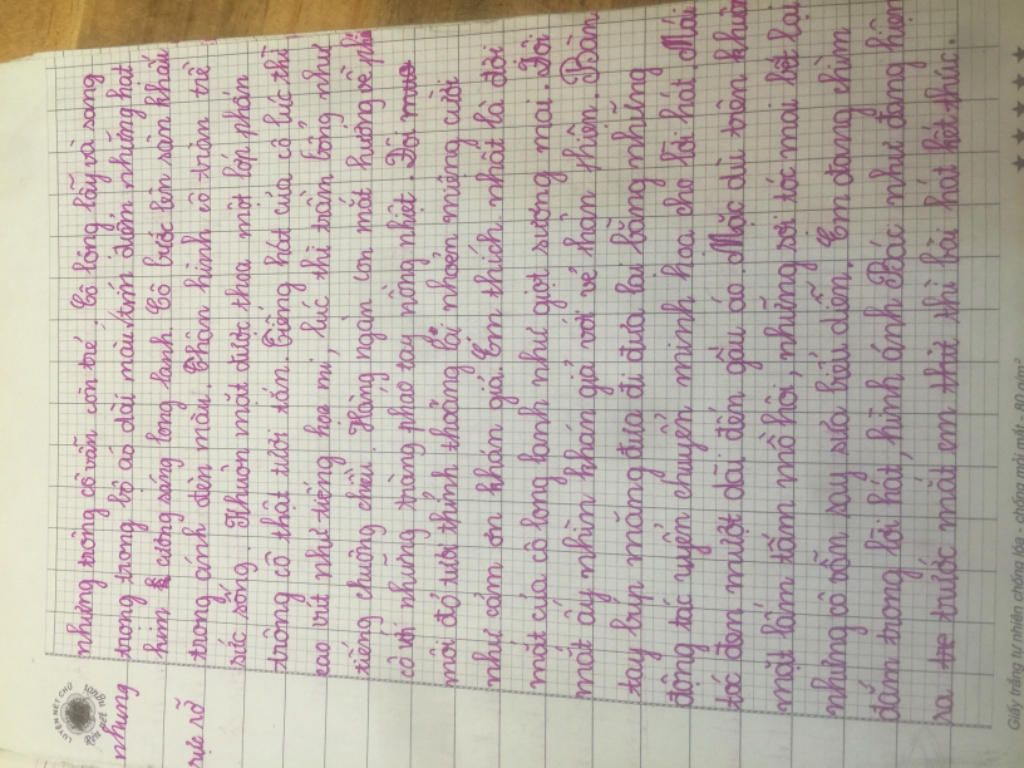 nhưng trông cô vẫn còn trẻ. Cô lộng lẫy và sang
trong trong bộ áo dài màu tím điểm những hạt
kim cương sáng long lanh. Cô bước lên sân khấu
trong ánh đèn màu. Thân hình cô tràn trề
sức sống. Khuôn mặt được thoa một lớp phấn
trông cô thật tươi tắn. Tiếng hát của cô lúc thì
cao vút như tiếng họa mi, lúc thì trầm bổng như
tiếng chuông chiều. Hàng ngàn con mắt hướng về phía
cô với những tràng pháo tay nồng nhiệt. Đôi
môi đỏ tươi thỉnh thoảng lại nhoẻn miệng cười
như cảm ơn khán giả. Em thích nhất là đôi
mắt của cô long lanh như giọt sương mai. Đôi
mắt ấy nhìn khán giả với vẻ thân thiện. Bàn
tay búp măng đưa đi đưa lại bằng những
động tác uyển chuyển minh họa cho lời hát. Mái
tóc đen mượt dài đến gấu áo. Mặc dù trên khuôn
mặt lấm tấm mồ hôi, những sợi tóc mai bết lại
nhưng cô vẫn say sưa biểu diễn. Em đang chìm
đắm trong lời hát, hình ảnh Bác như đang hiện
ra trước mắt em thì thì bài hát kết thúc.
nhung
rực rỡ
LUYỆN NÉT CHỮ
RÈN NẾT NGƯỜI
Giấy trắng tự nhiên chống lóa - chống mỏi mắt - 80 g/m²